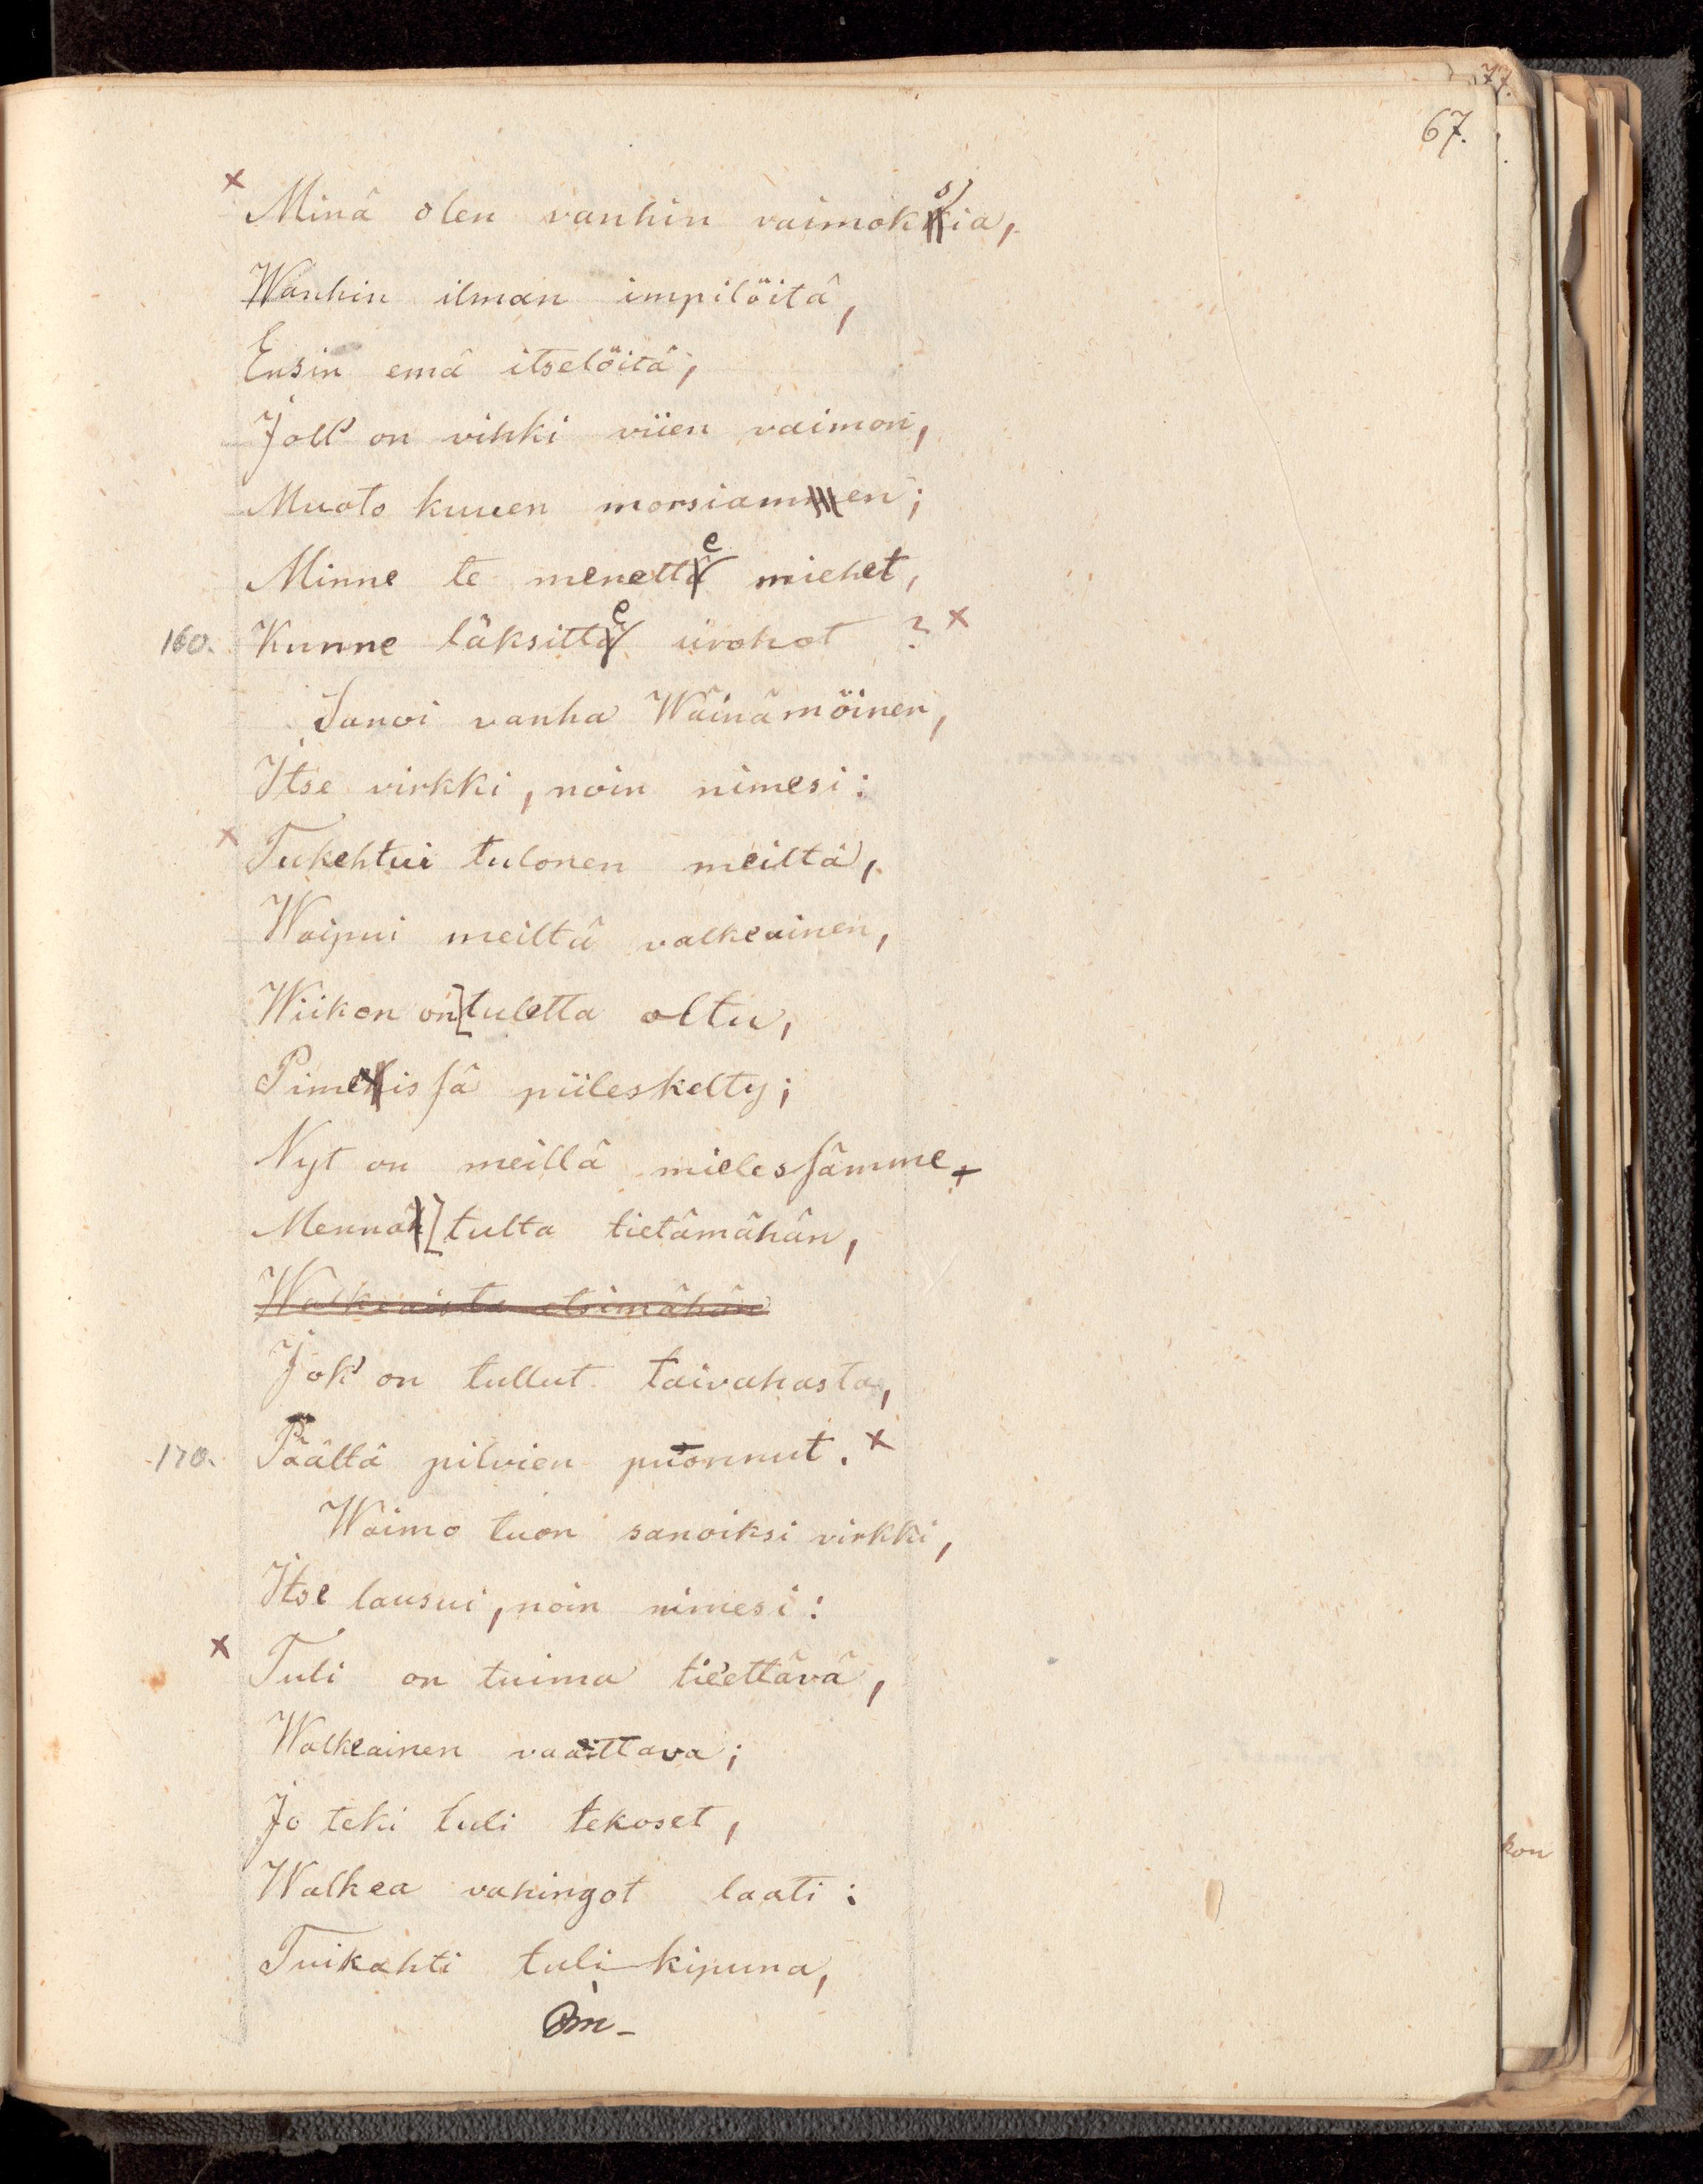 77.
67.
× Minä olen vanhin vaimoksia,
Wanhin ilman impilöitä,
Ensin emä itselöitä,
Joll' on vihki viien vaimon,
Muoto kuuen morsiamen;
Minne te menette miehet,
160. Kunne läksitte ürohot ? ×
Sanoi vanha Wäinämöinen,
Itse virkki, noin nimesi:
× Tukehtui tulonen meiltä,
Waipui meiltä valkeainen,
Wiikon on [tuletta oltu,
Pimeissä piileskelty;
Nyt on meillä mielessämme,
Mennä [tulta tietämähän,
Walkeaista etsimähän
Jok' on tullut taivahasta,
170. Päältä pilvien puonnut. ×
Waimo tuon sanoiksi virkki,
Itse lausui, noin nimesi:
× Tuli on tuima tieettävä,
Walkeainen vaaittava;
Jo teki tuli tekoset,
Walkea vahingot laati:
Tuikahti tuli-kipuna,
kon